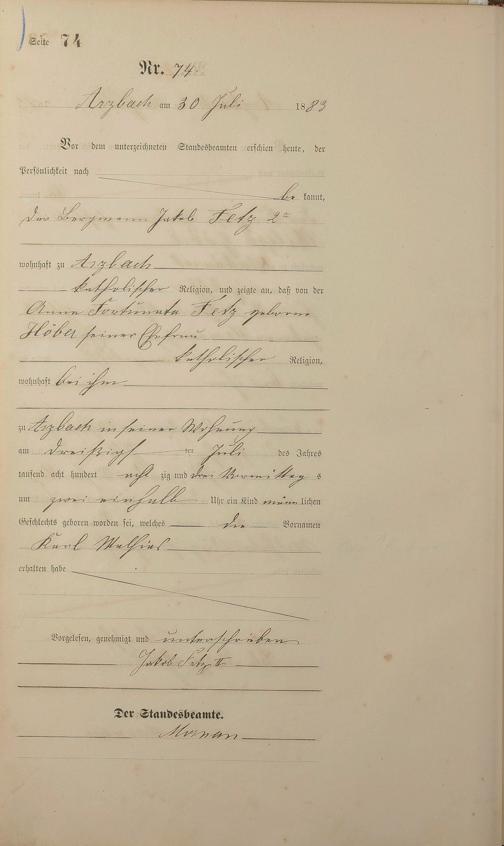 Seite 74
Nr. 74
Arzbach am 30 Juli 1883
Vor dem unterzeichneten Standesbeamten erschien heute, der
Persönlichkeit nach
be kannt,
der Bergmann Jakob Fetz 2r
wohnhaft zu Arzbach
katholischer Religion, und zeigte an, daß von der
Anna Fortunata Fetz geborne
Höber seiner Ehefrau
katholischer Religion,
wohnhaft bei ihm
zu Arzbach in seiner Wohnung
am dreißigst ten Juli des Jahres
tausend acht hundert acht zig und drei Vormittags
um zwei einhalb Uhr ein Kind männlichen
Geschlechts geboren worden sei, welches die Vornamen
Karl Mathias
erhalten habe
Vorgelesen, genehmigt und unterschrieben
Jakob Fetz II
Der Standesbeamte.